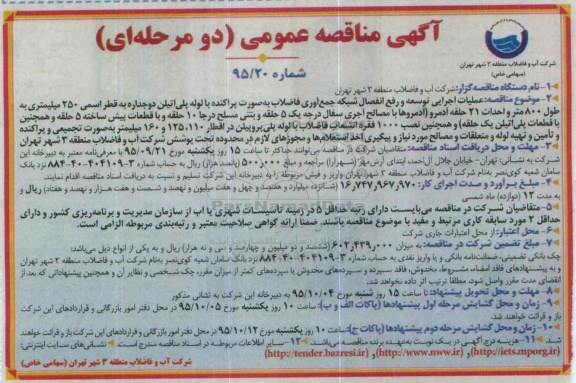 آگهی مناقصه عمومی (دو مرحله‌ای)
شماره ۹۵/۲۰
شرکت آب و فاضلاب منطقه ۳ شهر تهران
(سهامی خاص)
۱- نام دستگاه مناقصه‌گزار: شرکت آب و فاضلاب منطقه ۳ شهر تهران
۲- موضوع مناقصه: عملیات اجرایی توسعه و رفع انفصال شبکه جمع‌آوری فاضلاب به‌صورت پراکنده با لوله پلی‌اتیلن دوجداره به قطر اسمی ۲۵۰ میلیمتری به
طول ۸۰۰ متر و احداث ۲۱ حلقه آدمرو (آدمروها با مصالح آجری سفال درجه یک ۵ حلقه و بتنی مسلح درجا ۱۰ حلقه و با قطعات پیش ساخته ۵ حلقه و همچنین
با قطعات پلی‌اتیلن یک حلقه) و همچنین نصب ۱۰۰۰ فقره انشعاب فاضلاب با لوله پلی‌پروپیلن در اقطار ۱۱۰، ۱۲۵ و ۱۶۰ میلیمتر به‌صورت تجمیعی و پراکنده
و تأمین و تهیه لوله و متعلقات و مصالح مورد نیاز و پیگیری اخذ استعلام‌ها و مجوزهای لازم در محدوده تحت پوشش شرکت آب و فاضلاب منطقه ۳ شهر تهران
۳- مهلت و محل دریافت اسناد مناقصه: متقاضیان شرکت در مناقصه می‌توانند حداکثر تا ساعت ۱۵ روز یکشنبه مورخ ۹۵/۰۹/۲۱ با معرفی‌نامه معتبر به دبیرخانه این
شرکت به نشانی: تهران- خیابان جلال آل‌احمد، ابتدای آرش‌مهر مراجعه و مبلغ ۵۰۰٫۰۰۰ (پانصد هزار) ریال به حساب شماره ۳-۴۰۴۱۰۹-۴۰-۸۸۴ نزد بانک
سامان شعبه کوی‌نصر به‌نام شرکت آب و فاضلاب منطقه ۳ شهر تهران واریز و فیش مربوطه را به دبیرخانه این شرکت تسلیم و نسبت به دریافت اسناد مناقصه اقدام نمایند.
۴- مبلغ برآورد و مدت اجرای کار: ۱۶٫۷۴۷٫۹۶۷٫۹۷۰ (شانزده میلیارد و هفتصد و چهل و هفت میلیون و نهصد و شصت و هفت هزار و نهصد و هفتاد) ریال و
به مدت ۱۲ (دوازده) ماه شمسی
۵- متقاضیان شرکت در مناقصه می‌بایست دارای رتبه حداقل ۵ در زمینه تأسیسات شهری یا آب از سازمان مدیریت و برنامه‌ریزی کشور و دارای
حداقل ۲ مورد سابقه کاری مرتبط و مفید با موضوع مناقصه باشند. ضمناً ارائه گواهی صلاحیت معتبر و رتبه‌بندی مربوطه الزامی است.
۶- محل اعتبار: از محل اعتبارات جاری شرکت
۷- مبلغ تضمین شرکت در مناقصه: به میزان ۶۰۲٫۴۳۹٫۰۰۰ (ششصد و دو میلیون و چهارصد و سی و نه هزار) ریال و به یکی از انواع ذیل می‌باشد:
چک بانکی تضمینی، ضمانت‌نامه بانکی و یا واریز نقدی به حساب شماره ۳-۴۰۴۱۰۹-۴۰-۸۸۴ نزد بانک سامان شعبه کوی‌نصر به‌نام شرکت آب و فاضلاب منطقه ۳ شهر تهران
و به پیشنهادهای فاقد امضاء، مشروط، مخدوش، فاقد سپرده و سپرده‌های مخدوش یا سپرده‌های کمتر از میزان مقرر، چک شخصی و نظایر آن و همچنین پیشنهاداتی که بعد از
انقضای مدت مقرر واصل شود، مطلقاً ترتیب اثر داده نخواهد شد.
۸- مهلت و محل تحویل پیشنهاد: تا ساعت ۱۵ روز شنبه مورخ ۹۵/۱۰/۰۴ به دبیرخانه این شرکت به نشانی مذکور
۹- زمان و محل گشایش مرحله اول پیشنهادها (پاکات الف و ب): ساعت ۱۰ روز یکشنبه مورخ ۹۵/۱۰/۰۵ در محل دفتر امور بازرگانی و قراردادهای این شرکت
باز و قرائت خواهند شد.
۱۰- زمان و محل گشایش مرحله دوم پیشنهادها (پاکات ج): ساعت ۱۰ روز یکشنبه مورخ ۹۵/۱۰/۱۲ در محل دفتر امور بازرگانی و قراردادهای این شرکت باز و قرائت خواهند
شد. ۱۱- هزینه درج آگهی در یک نوبت به‌عهده برنده مناقصه می‌باشد. ۱۲- سایر اطلاعات مربوطه در اسناد مناقصه مندرج است. نشانی‌های سایت اینترنتی:
(http://iets.mporg.ir)، (http://www.nww.ir)، (http://tender.bazresi.ir)
شرکت آب و فاضلاب منطقه ۳ شهر تهران (سهامی خاص)